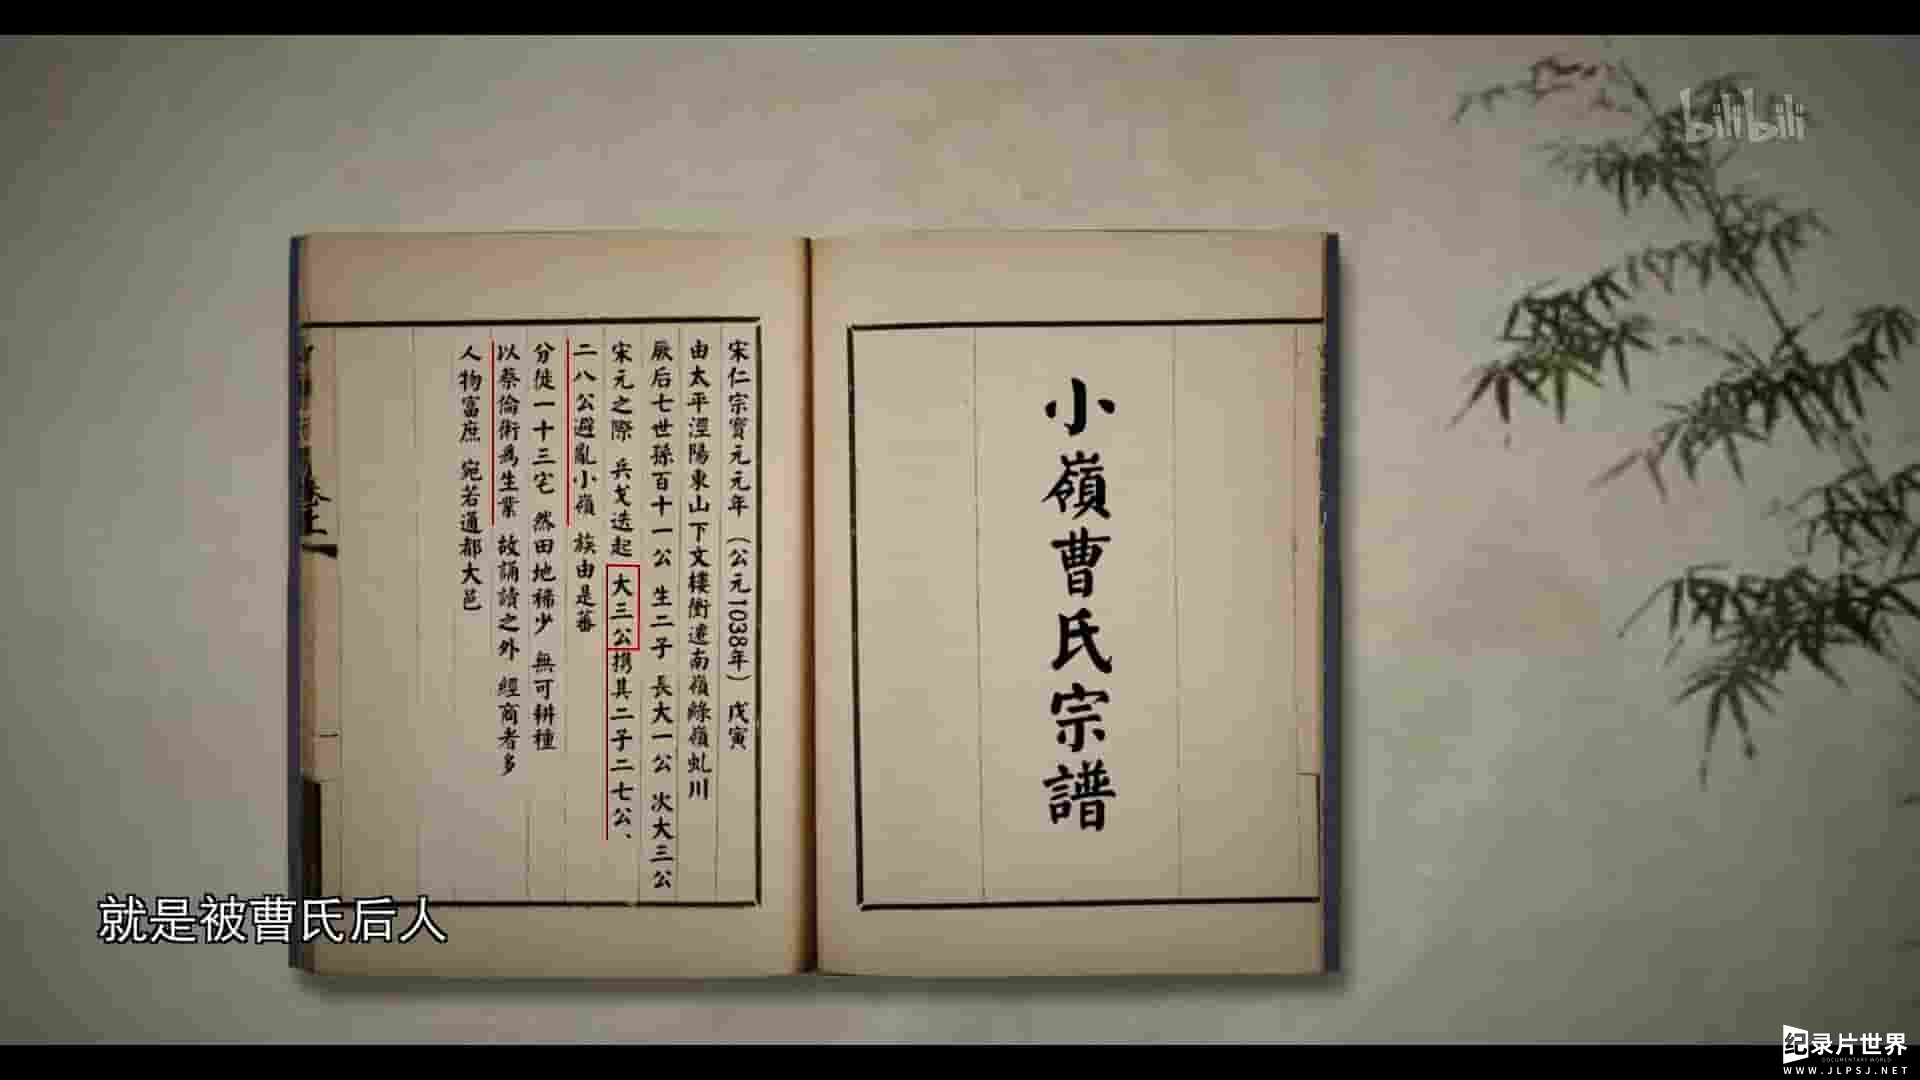 bilibili
小嶺曹氏宗譜
宋仁宗寳元元年（公元1038年）戊寅
由太平涇陽東山下文樓衝遷南嶺綠嶺虬川
厥后七世孫百十一公 生二子 長大一公 次大三公
宋元之際 兵戈迭起 大三公携其二子二七公、
二八公避亂小嶺 族由是蕃
分徙一十三宅 然田地稀少 無可耕種
以蔡倫術爲生業 故誦讀之外 經商者多
人物富庶 宛若通都大邑
卷上
一
就是被曹氏后人
纪录片世界
DOCUMENTARY WORLD
WWW.JLPSJ.NET